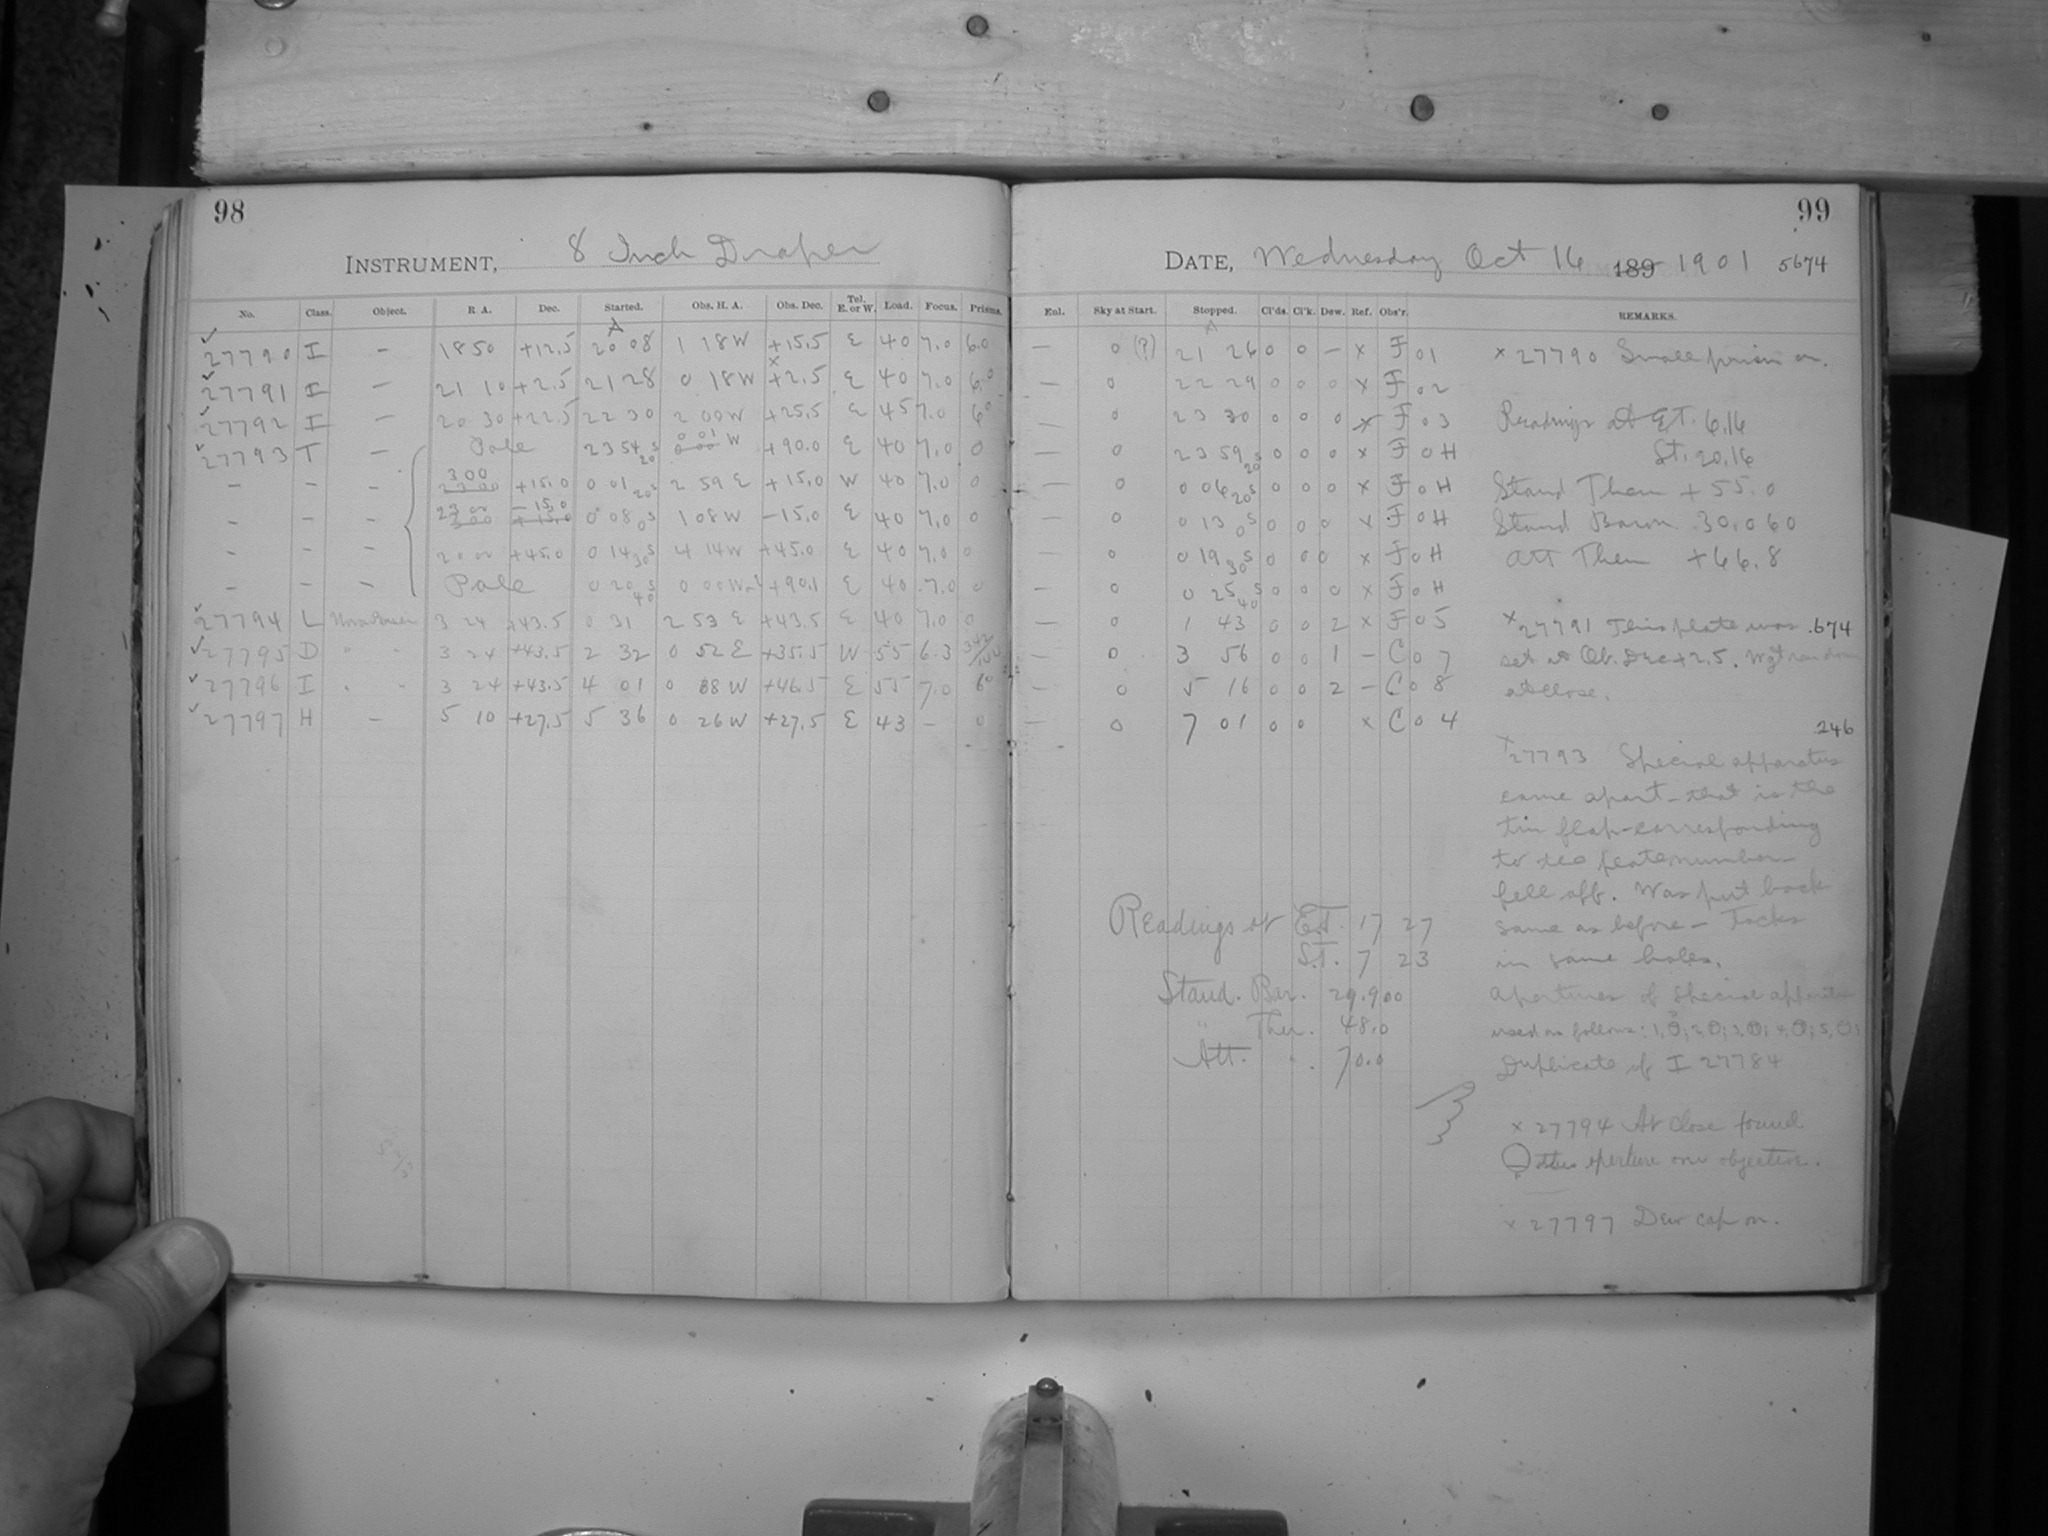 98
INSTRUMENT, 8 Inch Draper
No. Class. Object. R. A. Dec. Started. Obs. H. A. Obs. Dec. Tel. E. or W. Load. Focus. Prisms.
27790 I – 18 50 +12.5 20 08 1 18 W +15.5 E 40 7.0 6.0
27791 I – 21 10 +2.5 21 28 0 18 W +2.5 E 40 7.0 6.0
27792 I – 20 30 +22.5 22 30 2 00 W +25.5 E 45 7.0 6°
27793 T – Pole 23 54 20s 0 01 W +90.0 E 40 7.0 0
– – – 3 00 +15.0 0 01 20s 2 59 E +15.0 W 40 7.0 0
– – – 23 00 –15.0 0 08 0s 1 08 W –15.0 E 40 7.0 0
– – – 20 00 +45.0 0 14 30s 4 14 W +45.0 E 40 7.0 0
– – – Pole 0 20 40s 0 00 W +90.1 E 40 7.0 0
27794 L Nova Persei 3 24 +43.5 0 31 2 53 E +43.5 E 40 7.0 0
27795 D " " 3 24 +43.5 2 32 0 52 E +35.5 W 55 6.3
27796 I " " 3 24 +43.5 4 01 0 38 W +46.5 E 55 7.0 6°
27797 H – 5 10 +27.5 5 36 0 26 W +27.5 E 43 – 0
99
DATE, Wednesday Oct 16 189 1901 5674
Enl. Sky at Start. Stopped. Cl'ds. Cl'k. Dew. Ref. Obs'r. REMARKS.
– 0 (?) 21 26 0 0 – x F 01
– 0 22 29 0 0 0 x F 02
– 0 23 30 0 0 0 x F 03
– 0 23 59 20s 0 0 0 x F 0H
– 0 0 06 20s 0 0 0 x F 0H
– 0 0 13 0s 0 0 0 x F 0H
– 0 0 19 30s 0 0 0 x F 0H
– 0 0 25 40s 0 0 0 x F 0H
– 0 1 43 0 0 2 x F 05
– 0 3 56 0 0 1 – C 07
– 0 5 16 0 0 2 – C 08
0 7 01 0 0 x C 04
x 27790 Small prism on.
Readings at ET. 6.16
St. 20.16
Stand Them + 55.0
Stand Barom. 30.060
Att Them +66.8
x 27791 This plate was .674
set at Ob. Dec +2.5. Wgt ran down
at close.
.246
x 27793 Special apparatus
came apart – that is the
tin flap – corresponding
to the plate number –
fell off. Was put back
same as before – Tacks
in same holes.
Apertures of Special apparatus
used as follows: 1, 2, 3, 4, 5,
Duplicate of I 27784
x 27794 At close found
this aperture over objective.
x 27797 Dew cap on.
Readings at E.T. 17 27
S.T. 7 23
Stand. Bar. 29.900
" Ther. 48.0
Att. " 70.0